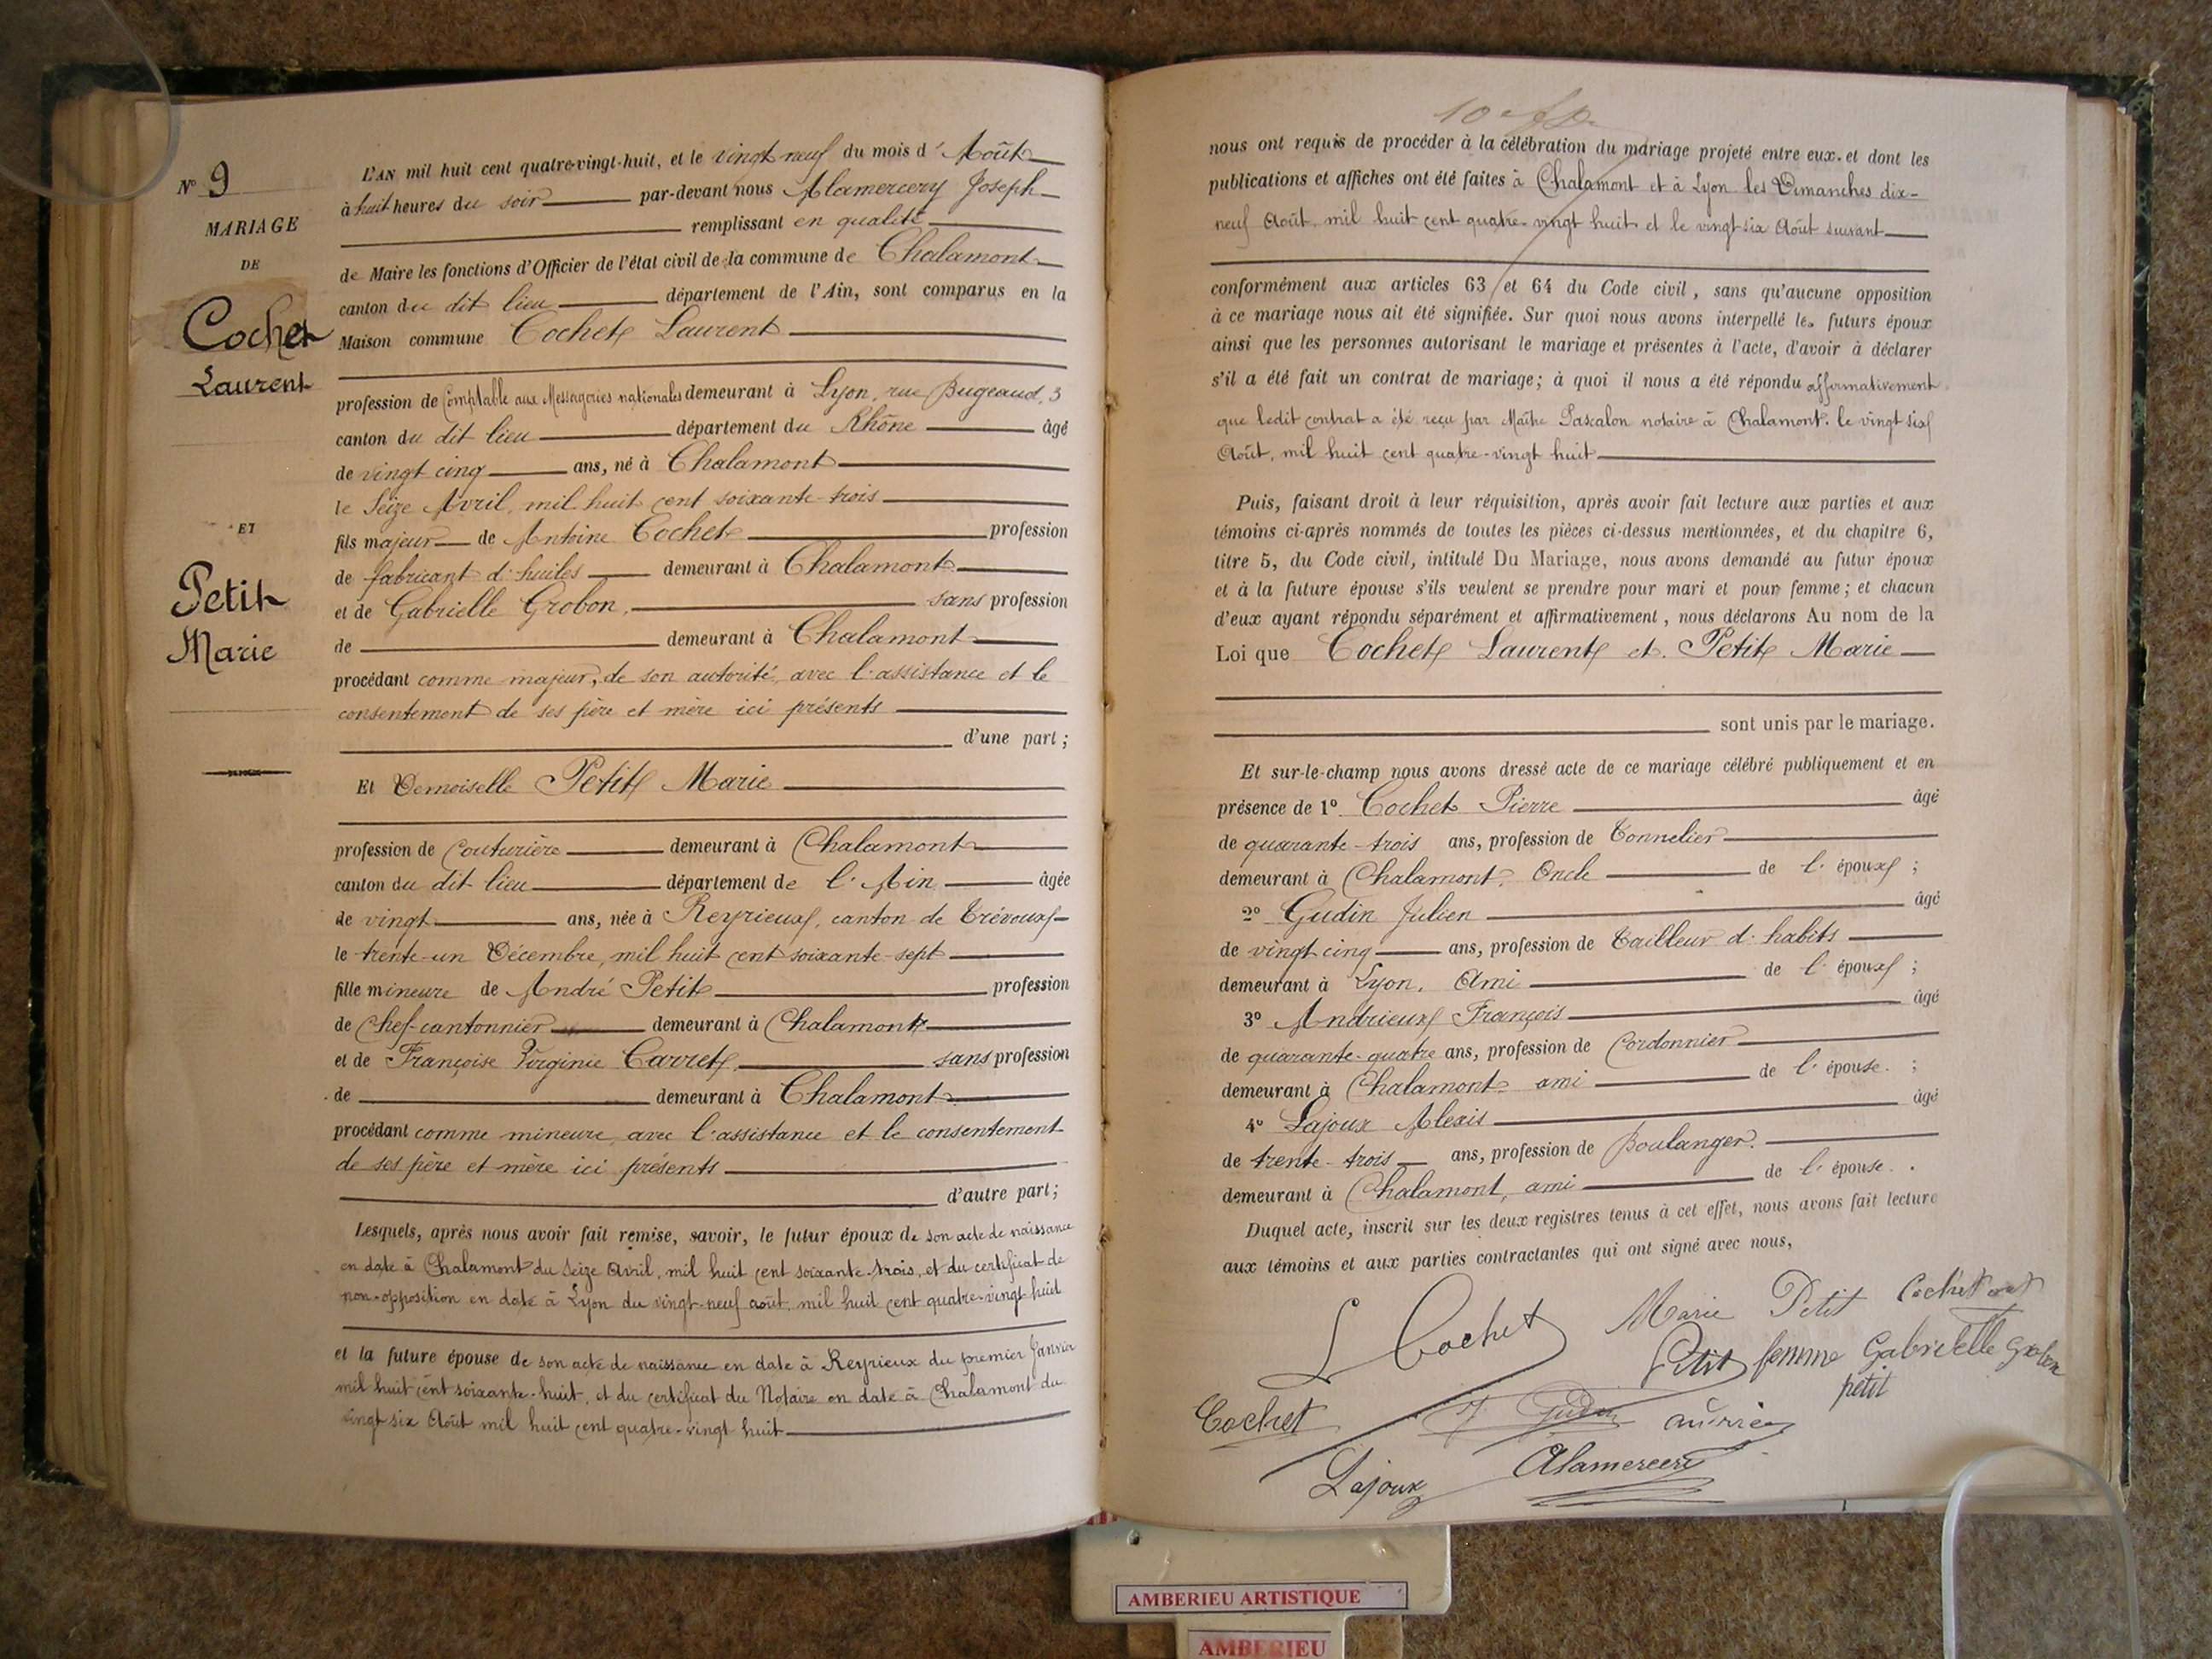 N° 9
MARIAGE
DE
Cochet
Laurent
ET
Petit
Marie
L'AN mil huit cent quatre-vingt-huit, et le vingt neuf du mois d'Août
à huit heures du soir par-devant nous Alamercery Joseph
remplissant en qualité
de Maire les fonctions d'Officier de l'état civil de la commune de Chalamont
canton du dit lieu département de l'Ain, sont comparus en la
Maison commune Cochet Laurent
profession de Comptable aux Messageries nationales demeurant à Lyon, rue Bugeaud, 3
canton du dit lieu département du Rhône âgé
de vingt cinq ans, né à Chalamont
le Seize Avril, mil huit cent soixante-trois
fils majeur de Antoine Cochet profession
de fabricant d'huiles demeurant à Chalamont
et de Gabrielle Grobon, sans profession
de demeurant à Chalamont
procédant comme majeur, de son autorité, avec l'assistance et le
consentement de ses père et mère ici présents
d'une part;
Et Demoiselle Petit Marie
profession de Couturière demeurant à Chalamont
canton du dit lieu département de l'Ain âgée
de vingt ans, née à Reyrieux, canton de Trévoux
le trente-un Décembre, mil huit cent soixante-sept
fille mineure de André Petit profession
de Chef-cantonnier demeurant à Chalamont
et de Françoise Virginie Carret, sans profession
de demeurant à Chalamont
procédant comme mineure, avec l'assistance et le consentement
de ses père et mère ici présents
d'autre part;
Lesquels, après nous avoir fait remise, savoir, le futur époux de son acte de naissance
en date à Chalamont du Seize Avril, mil huit cent soixante-trois, et du certificat de
non-opposition en date à Lyon du vingt-neuf août, mil huit cent quatre-vingt-huit
et la future épouse de son acte de naissance en date à Reyrieux du premier Janvier
mil huit cent soixante-huit, et du certificat du Notaire en date à Chalamont du
vingt six Août mil huit cent quatre-vingt huit
nous ont requis de procéder à la célébration du mariage projeté entre eux. et dont les
publications et affiches ont été faites à Chalamont et à Lyon les Dimanches dix-
neuf Août, mil huit cent quatre-vingt huit et le vingt six Août suivant
conformément aux articles 63 et 64 du Code civil, sans qu'aucune opposition
à ce mariage nous ait été signifiée. Sur quoi nous avons interpellé les futurs époux
ainsi que les personnes autorisant le mariage et présentes à l'acte, d'avoir à déclarer
s'il a été fait un contrat de mariage; à quoi il nous a été répondu affirmativement
que ledit contrat a été reçu par Maître Pascalon notaire à Chalamont. le vingt six
Août, mil huit cent quatre-vingt huit
Puis, faisant droit à leur réquisition, après avoir fait lecture aux parties et aux
témoins ci-après nommés de toutes les pièces ci-dessus mentionnées, et du chapitre 6,
titre 5, du Code civil, intitulé Du Mariage, nous avons demandé au futur époux
et à la future épouse s'ils veulent se prendre pour mari et pour femme; et chacun
d'eux ayant répondu séparément et affirmativement, nous déclarons Au nom de la
Loi que Cochet Laurent et Petit Marie
sont unis par le mariage.
Et sur-le-champ nous avons dressé acte de ce mariage célébré publiquement et en
présence de 1° Cochet Pierre âgé
de quarante-trois ans, profession de Tonnelier
demeurant à Chalamont, Oncle de l'époux;
2° Gudin Julien âgé
de vingt cinq ans, profession de Tailleur d'habits
demeurant à Lyon, Ami de l'époux;
3° Andrieux François âgé
de quarante-quatre ans, profession de Cordonnier
demeurant à Chalamont ami de l'épouse.;
4° Lajoux Alexis âgé
de trente-trois ans, profession de Boulanger.
demeurant à Chalamont, ami de l'épouse.
Duquel acte, inscrit sur les deux registres tenus à cet effet, nous avons fait lecture
aux témoins et aux parties contractantes qui ont signé avec nous,
L Cochet Marie Petit Cochet
Petit femme petit Gabrielle Grobon
Cochet J Gudin
Lajoux Alamercery
AMBERIEU ARTISTIQUE
AMBERIEU